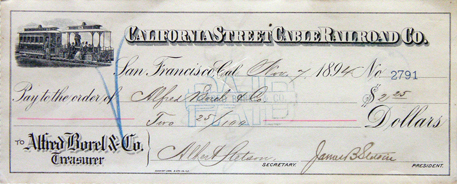 CALIFORNIA STREET CABLE RAILROAD CO.
San Francisco, Cal. Nov. 7, 1894 No 2791
Pay to the order of Alfred Borel & Co. $2.25
Two 25/100 Dollars
TO Alfred Borel & Co.
Treasurer
Albert Stetson SECRETARY. James B Stetson PRESIDENT.